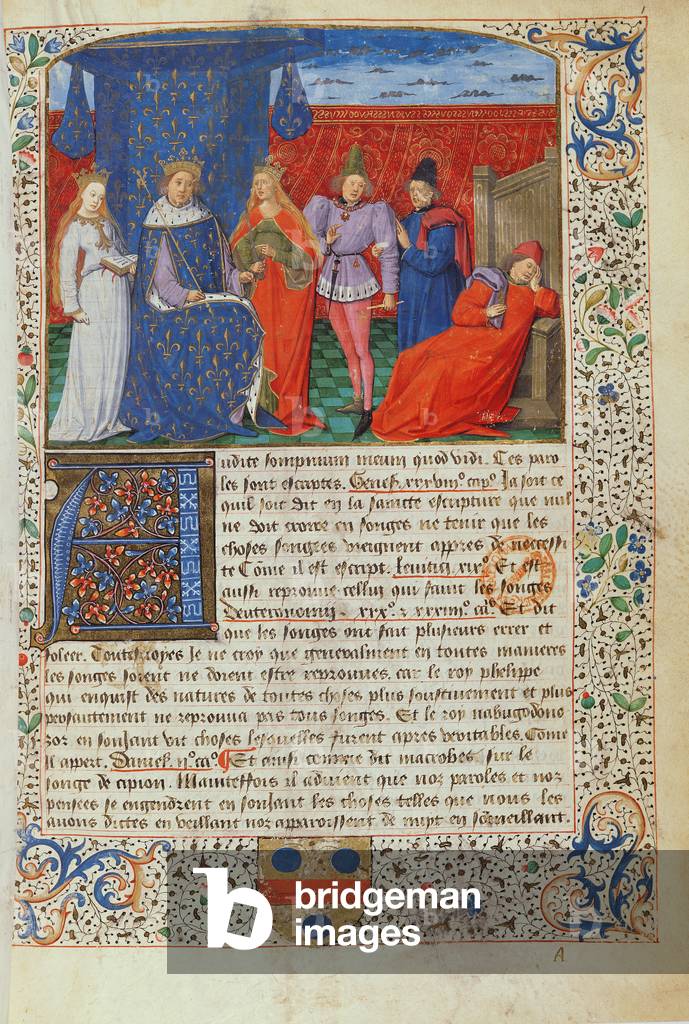 Audite sompnium meum quod vidi. Ces paro
les sont escriptes. Genes. xxxviiº capº. Ja soit ce
quil soit dit en la saincte escripture que nul
ne doit croire en songes ne tenir que les
choses songees viegnent appres de necessi
te Come il est escript. Leuitici. xixº. Et est
aussi reprouue cellui qui faint les songes
Deuteronomii. xixº. & xxxiiiº. caº. Et dit
que les songes ont fait plusieurs errer et
foleer. Toutesuoyes Je ne croy que generalment en toutes manieres
les songes soient ne doient estre reprouues. car le roy phelippe
qui enquist des natures de toutes choses plus soustiuement et plus
parfaitement ne reprouua pas tous songes. Et le roy nabugodono
zor en sonjant vit choses lesquelles furent apres veritables. Come
il appert. Daniel. iiº. caº. Et aussi comme dit macrobes sur le
songe de cipion. Maintesfois il aduient que noz paroles et noz
pensees se engendrent en sonjant les choses telles que nous les
auons dictes en veillant noz apparoissent de nuyt en someillant.
A
b bridgeman
images